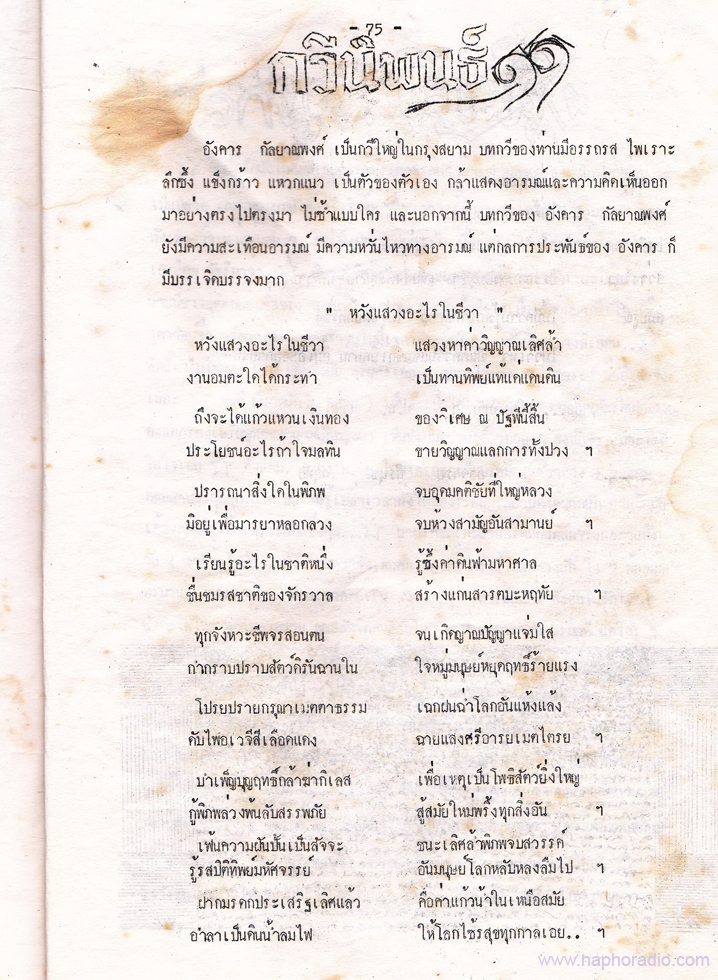 - 75 -
กวีนิพนธ์
อังคาร กัลยาณพงศ์ เป็นกวีใหญ่ในกรุงสยาม บทกวีของท่านมีอรรถรส ไพเราะ
ลึกซึ้ง แข็งกร้าว แหวกแนว เป็นตัวของตัวเอง กล้าแสดงอารมณ์และความคิดเห็นออก
มาอย่างตรงไปตรงมา ไม่ซ้ำแบบใคร และนอกจากนี้ บทกวีของ อังคาร กัลยาณพงศ์
ยังมีความสะเทือนอารมณ์ มีความหวั่นไหวทางอารมณ์ แต่กลการประพันธ์ของ อังคาร ก็
มีบรรเจิดบรรจงมาก
" หวังแสวงอะไรในชีวา "
หวังแสวงอะไรในชีวา แสวงหาค่าวิญญาณเลิศล้ำ
งานอมตะใดได้กระทำ เป็นทานทิพย์แท้แด่แดนดิน
ถึงจะได้แก้วแหวนเงินทอง ของวิเศษ ณ ปัฐพีนี้สิ้น
ประโยชน์อะไรถ้าใจมลทิน ขายวิญญาณแลกการทั้งปวง ฯ
ปรารถนาสิ่งใดในพิภพ จบอุดมคติชัยที่ใหญ่หลวง
มิอยู่เพื่อมารยาหลอกลวง จบห้วงสามัญอันสามานย์ ฯ
เรียนรู้อะไรในชาติหนึ่ง รู้ซึ้งค่าดินฟ้ามหาศาล
ชื่นชมรสชาติของจักรวาล สร้างแก่นสารตบะหฤทัย ฯ
ทุกจังหวะชีพจรสอนตน จนเกิดญาณปัญญาแจ่มใส
กำกราบปราบสัตว์ดิรัจฉานใน ใจหมู่มนุษย์หยุดฤทธิ์ร้ายแรง
โปรยปรายกรุณาเมตตาธรรม เฉกฝนฉ่ำโลกอันแห้งแล้ง
ดับไฟอเวจีสีเลือดแดง ฉายแสงศรีอารยเมตไตรย ฯ
บำเพ็ญบุญฤทธิ์กล้าฆ่ากิเลส เพื่อเหตุเป็นโพธิสัตว์ยิ่งใหญ่
กู้พิภพล่วงพ้นลับสรรพภัย สู่สมัยใหม่พริ้งทุกสิ่งอัน ฯ
เฟ้นความฝันปั้นเป็นสัจจะ ชนะเลิศล้ำพิภพจบสวรรค์
รู้รสปิติทิพย์มหัศจรรย์ อันมนุษย์โลกหลับหลงลืมไป ฯ
ฝากมรดกประเสริฐเลิศแล้ว คือค่าแก้วน้ำในเหนือสมัย
อำลาเป็นดินน้ำลมไฟ ให้โลกไซ้รสุขทุกกาลเอย.. ฯ
www.haphoradio.com